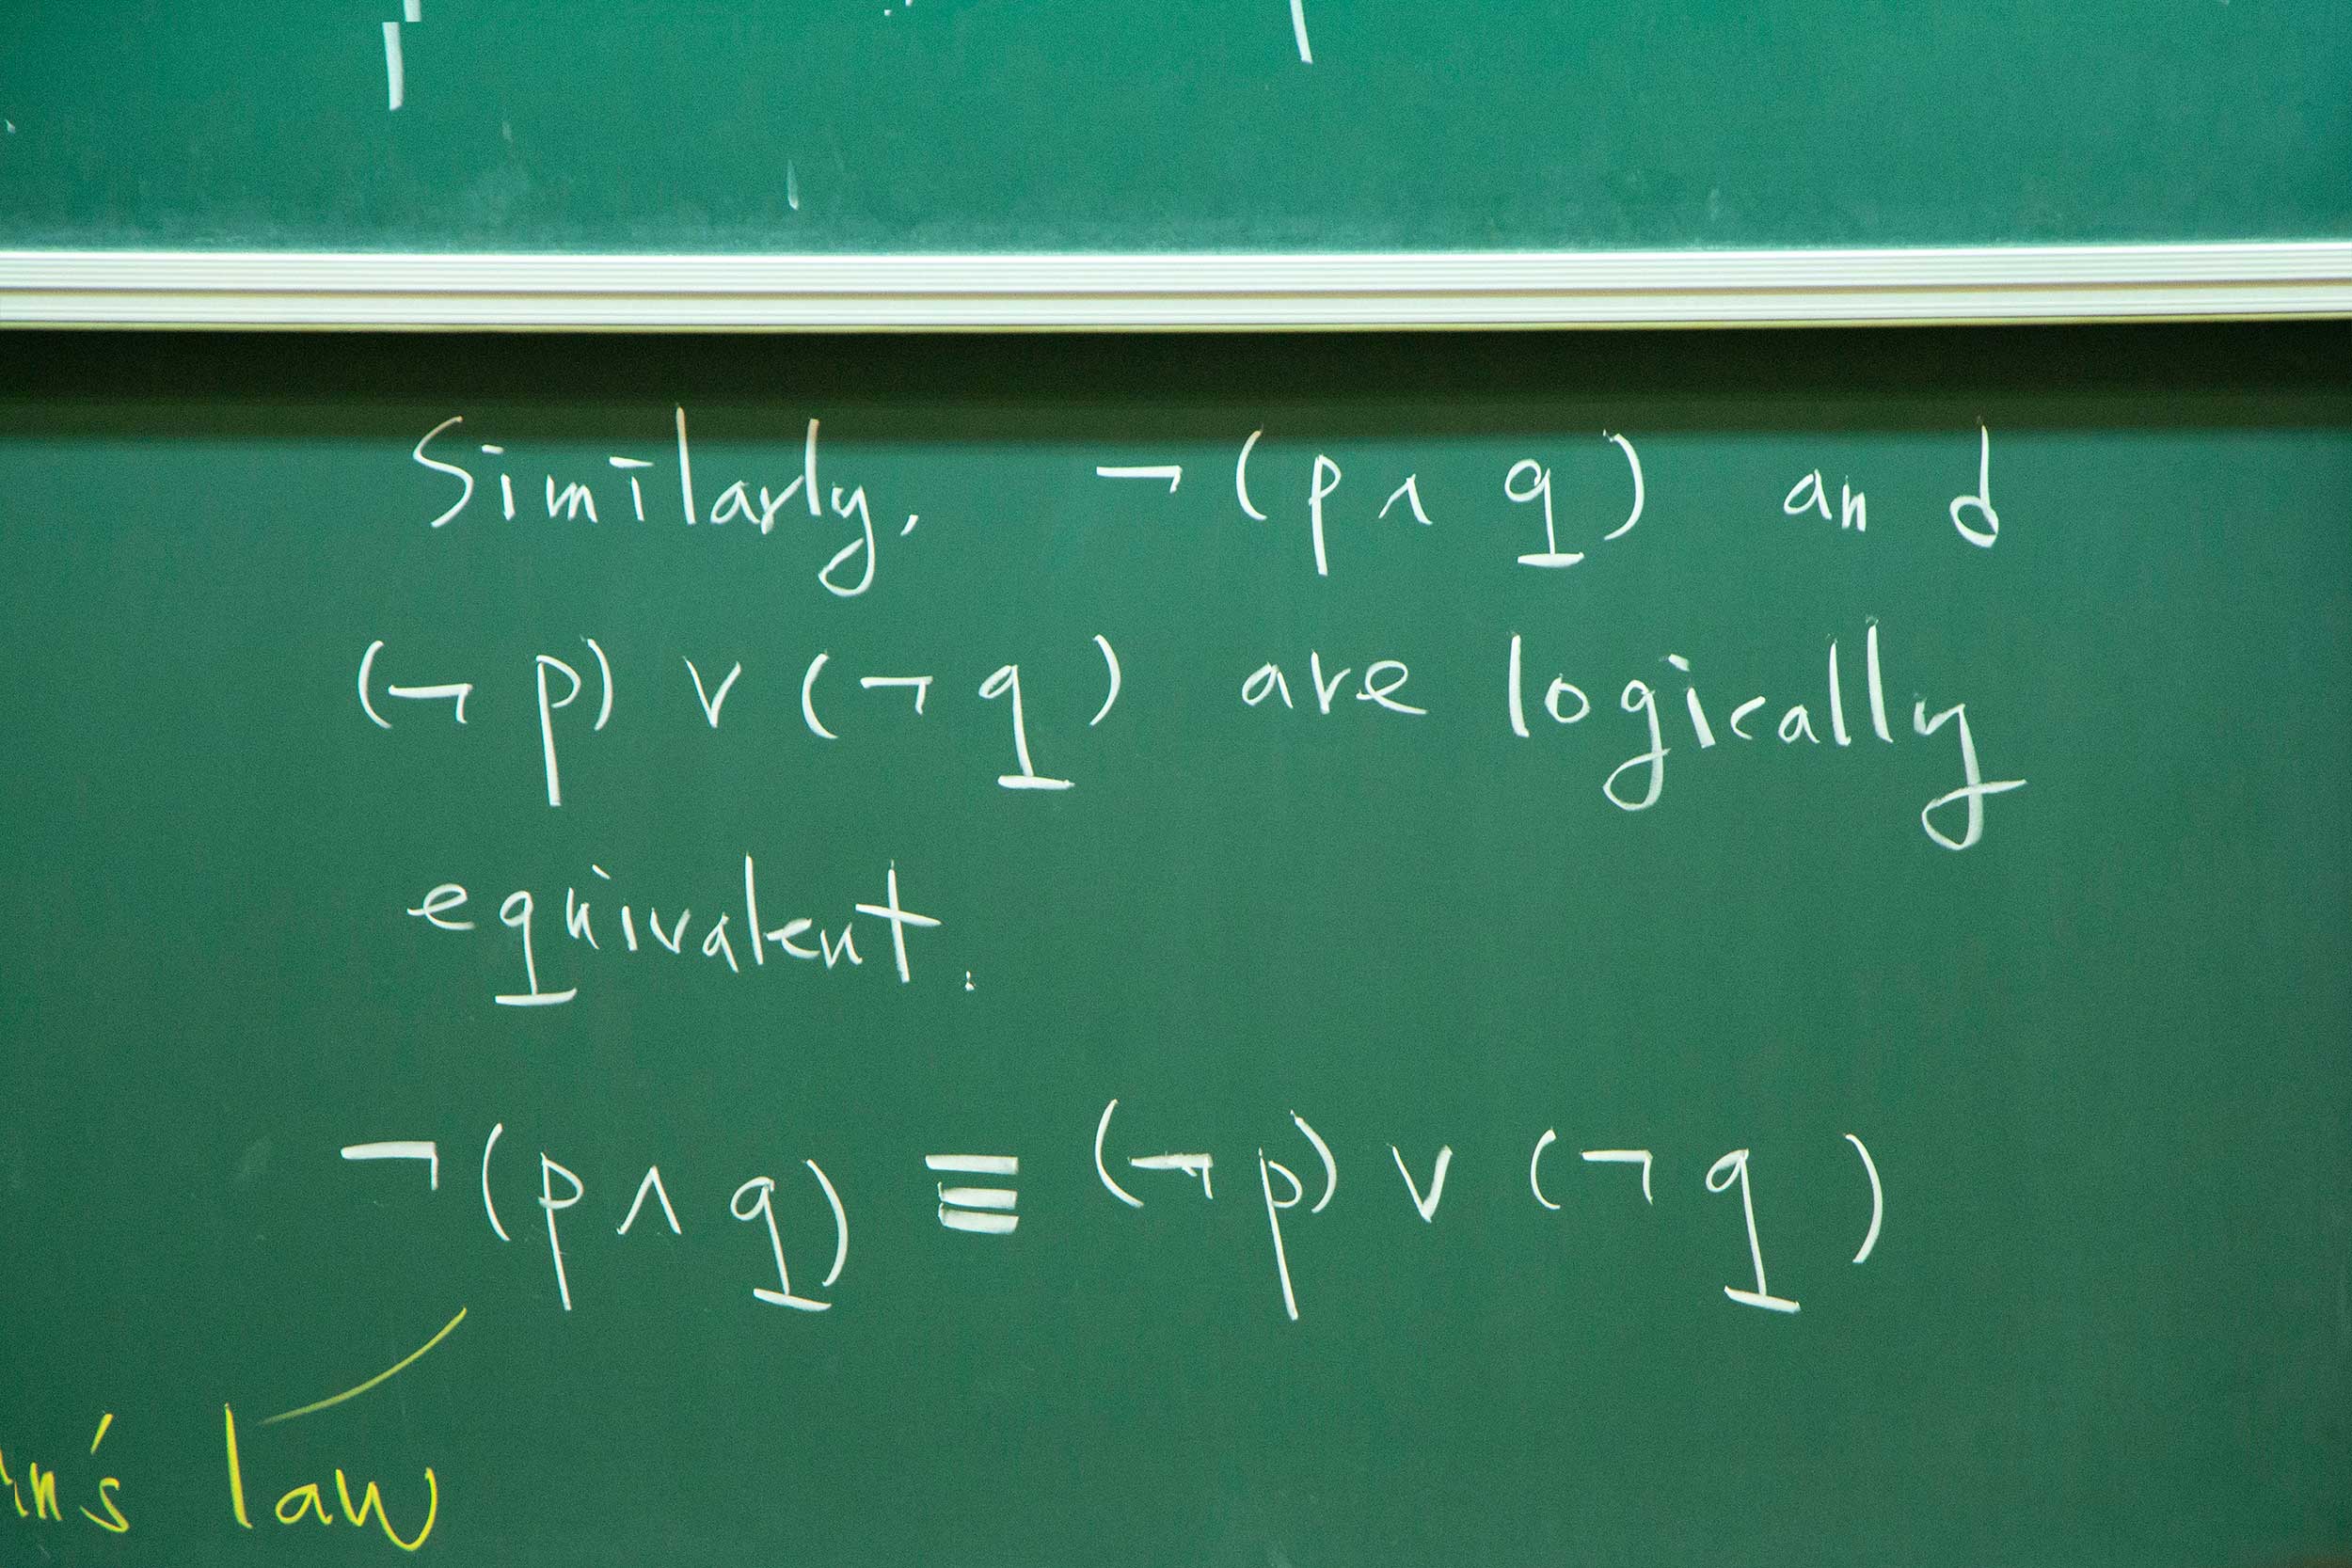 Similarly, ¬(p ∧ q) and
(¬p) ∨ (¬q) are logically
equivalent.
¬(p ∧ q) ≡ (¬p) ∨ (¬q)
law